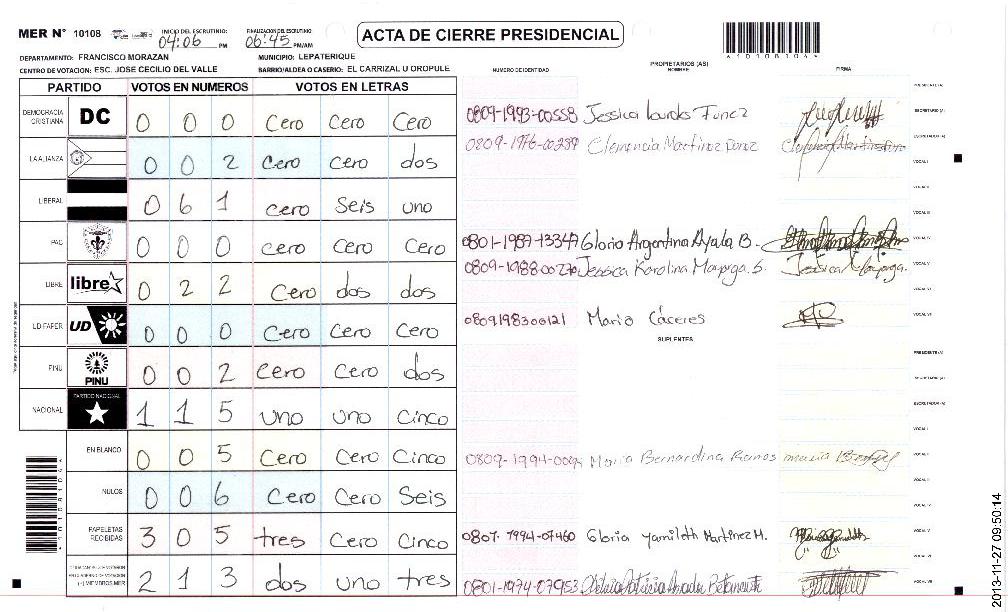 MER N° 10108 INICIO DEL ESCRUTINIO: 04:06 PM FINALIZACION DEL ESCRUTINIO 06:45 PM/AM ACTA DE CIERRE PRESIDENCIAL
DEPARTAMENTO: FRANCISCO MORAZAN MUNICIPIO: LEPATERIQUE
CENTRO DE VOTACION: ESC. JOSE CECILIO DEL VALLE BARRIO/ALDEA O CASERIO: EL CARRIZAL U OROPULE
NUMERO DE IDENTIDAD PROPIETARIOS (AS) NOMBRE FIRMA
PARTIDO VOTOS EN NUMEROS VOTOS EN LETRAS
DEMOCRACIA CRISTIANA DC 0 0 0 Cero Cero Cero
0809-1993-00558 Jessica Lourdes Funez
LA ALIANZA 0 0 2 Cero cero dos
0809-1976-00239 Clemencia Martinez Perez
LIBERAL 0 6 1 cero Seis uno
PAC 0 0 0 cero Cero Cero
0801-1987-13347 Gloria Argentina Ayala B.
0809-1988-00270 Jessica Karolina Mayorga. S. Jessica Mayorga.
LIBRE libre 0 2 2 Cero dos dos
UD FAPER UD 0 0 0 Cero Cero Cero
0809198300121 Maria Cáceres
SUPLENTES
PINU PINU 0 0 2 cero Cero dos
NACIONAL PARTIDO NACIONAL 1 1 5 uno uno Cinco
EN BLANCO 0 0 5 Cero Cero Cinco
0809-1994-009 Maria Bernardina Ramos
NULOS 0 0 6 Cero Cero Seis
PAPELETAS RECIBIDAS 3 0 5 tres Cero Cinco
0807-1994-07460 Gloria Yamileth Martinez M.
(+) MIEMBROS MER 2 1 3 dos uno tres
0801-1974-07953
2013-11-27 09:50:14